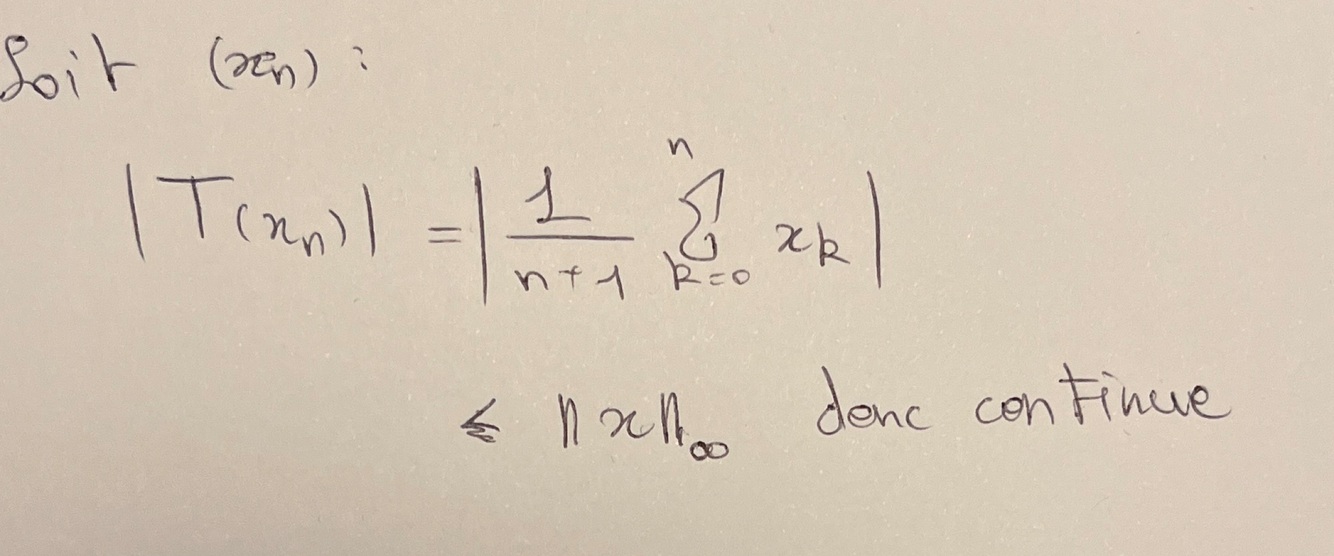 Soit (xn) :
|T(xn)| = |1/(n+1) ∑_{k=0}^{n} xk|
≤ ‖x‖∞ donc continue